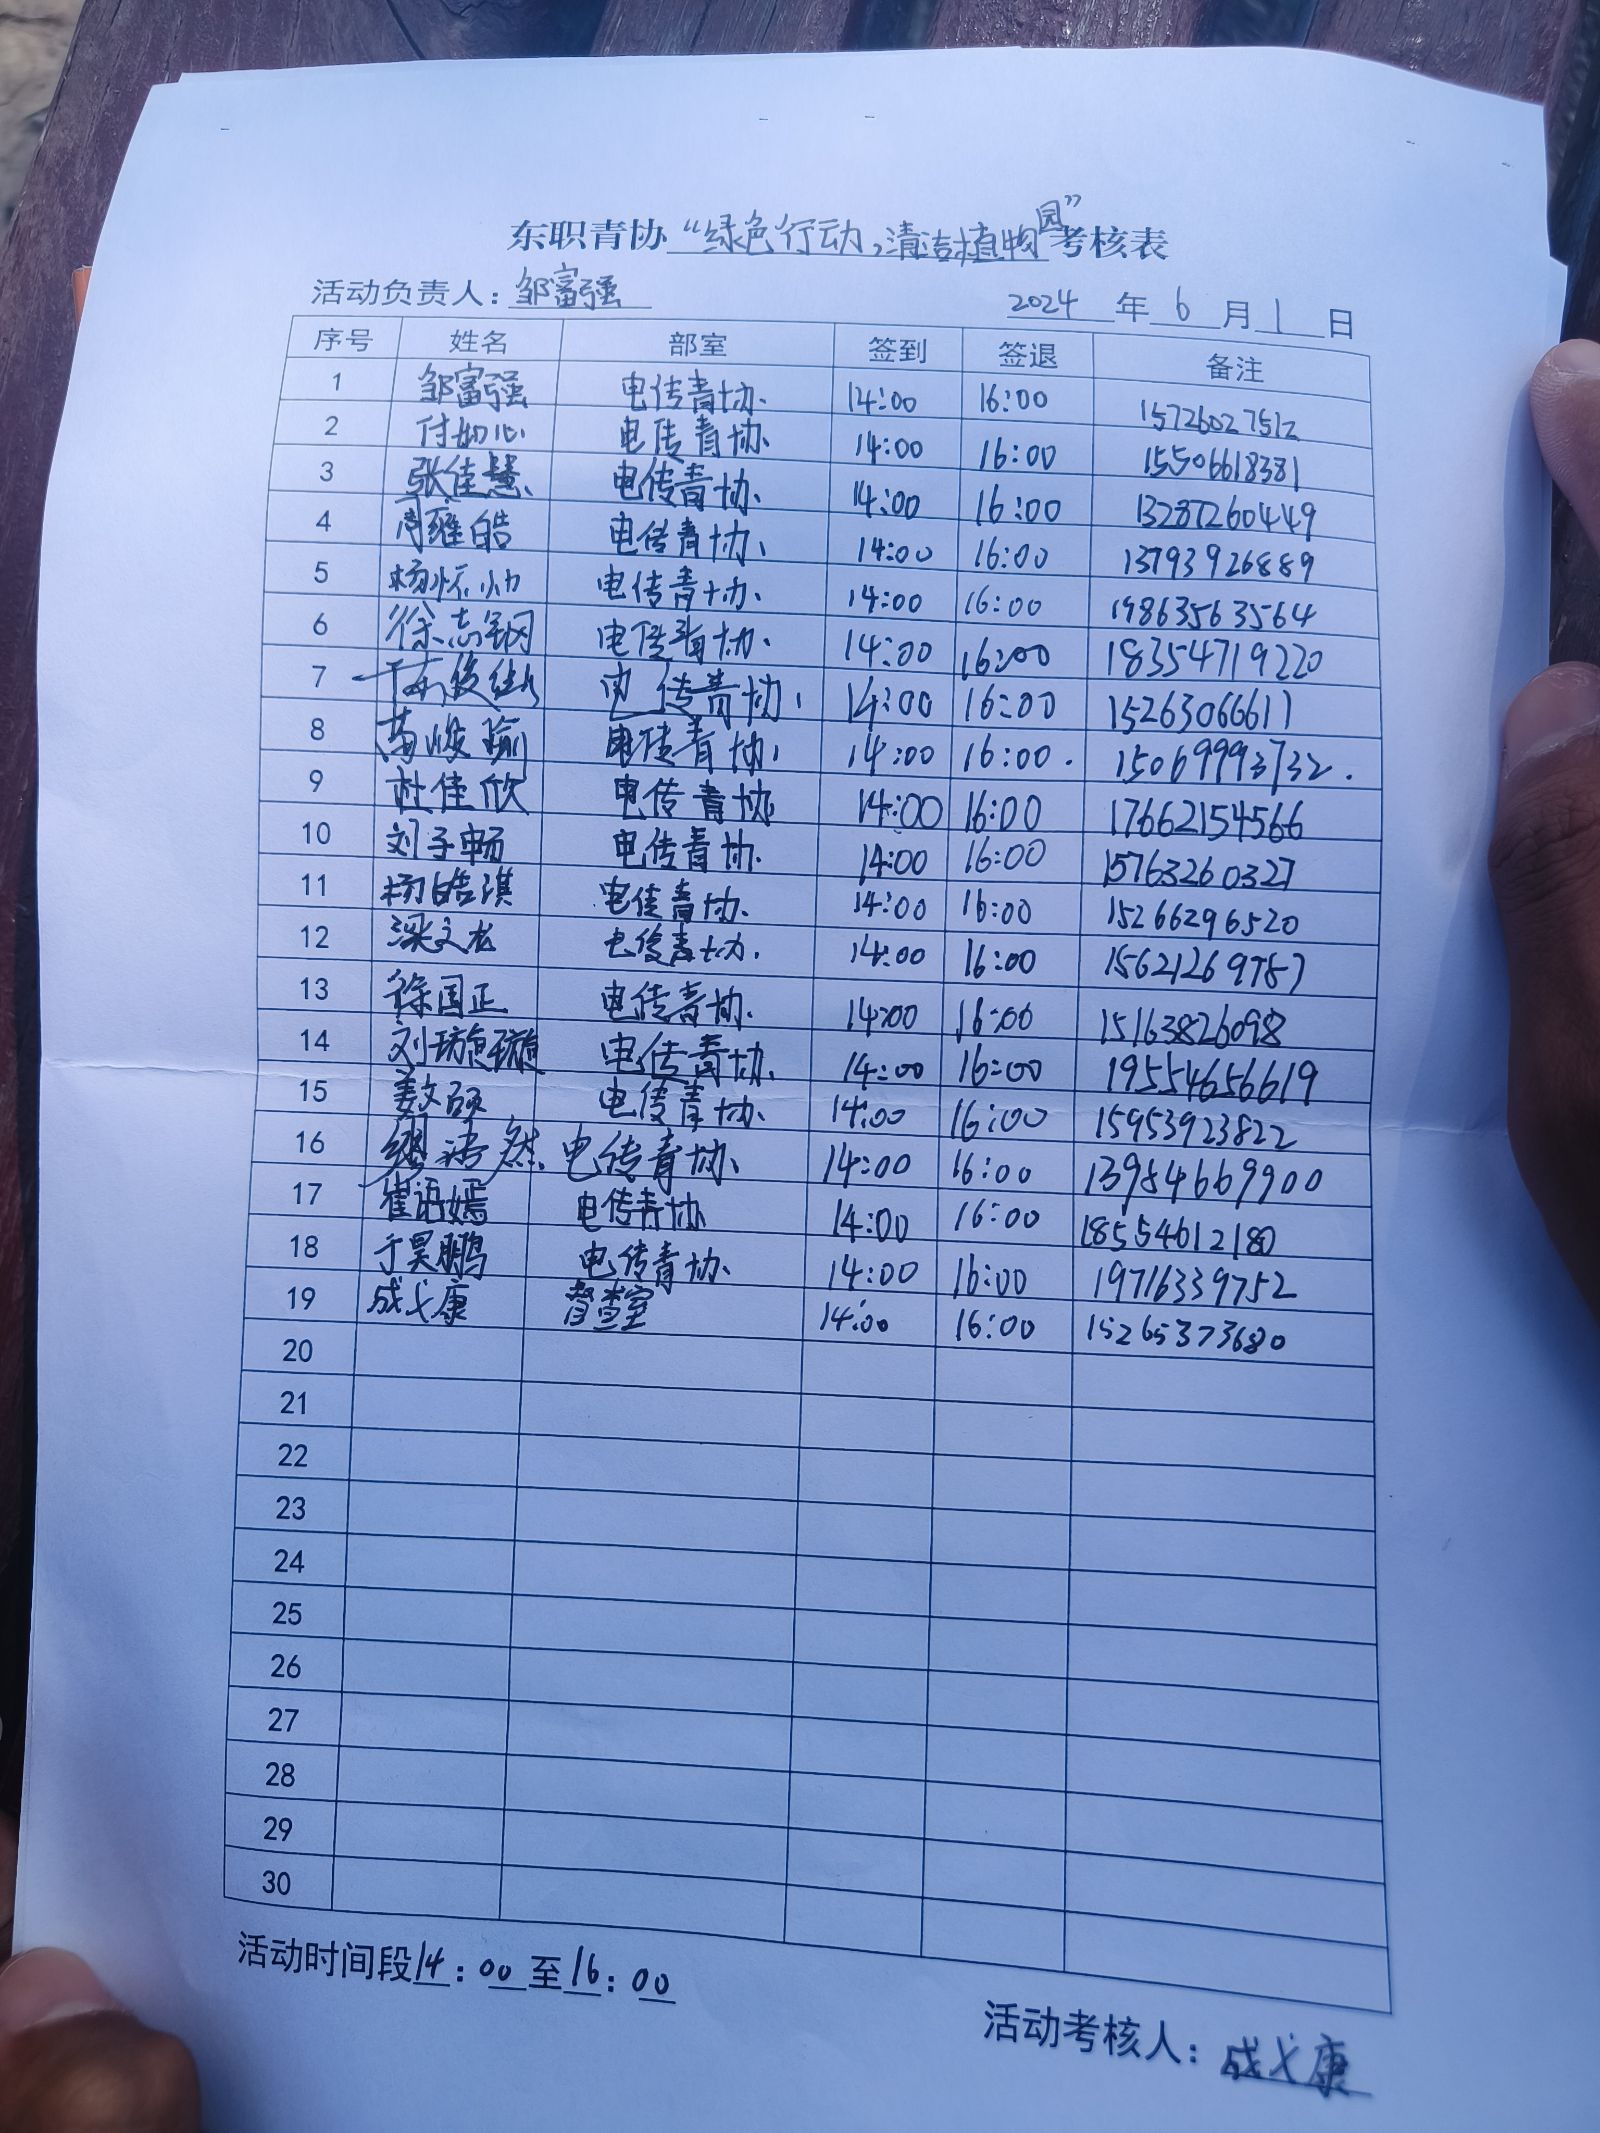 东职青协“绿色行动,清洁植物园”考核表
活动负责人:邹富强 2024年6月1日
序号 姓名 部室 签到 签退 备注
1 邹富强 电传青协 14:00 16:00 15726027512
2 付如心 电传青协 14:00 16:00 15506618381
3 张佳慧 电传青协 14:00 16:00 13287260449
4 周雍皓 电传青协 14:00 16:00 13793926889
5 电传青协 14:00 16:00 19863563564
6 徐志钢 电传青协 14:00 16:00 18354719220
7 电传青协 14:00 16:00 15263066611
8 电传青协 14:00 16:00 15069993732
9 杜佳欣 电传青协 14:00 16:00 17662154566
10 刘子畅 电传青协 14:00 16:00 15763260327
11 杨皓淇 电传青协 14:00 16:00 15266296520
12 梁文龙 电传青协 14:00 16:00 15621269787
13 徐国正 电传青协 14:00 16:00 15163826098
14 电传青协 14:00 16:00 19554656619
15 姜文硕 电传青协 14:00 16:00 15953923822
16 电传青协 14:00 16:00 13984669900
17 崔语嫣 电传青协 14:00 16:00 18554612180
18 于昊鹏 电传青协 14:00 16:00 19716339752
19 成弋康 督查室 14:00 16:00 15265373680
20
21
22
23
24
25
26
27
28
29
30
活动时间段14:00至16:00
活动考核人:成弋康